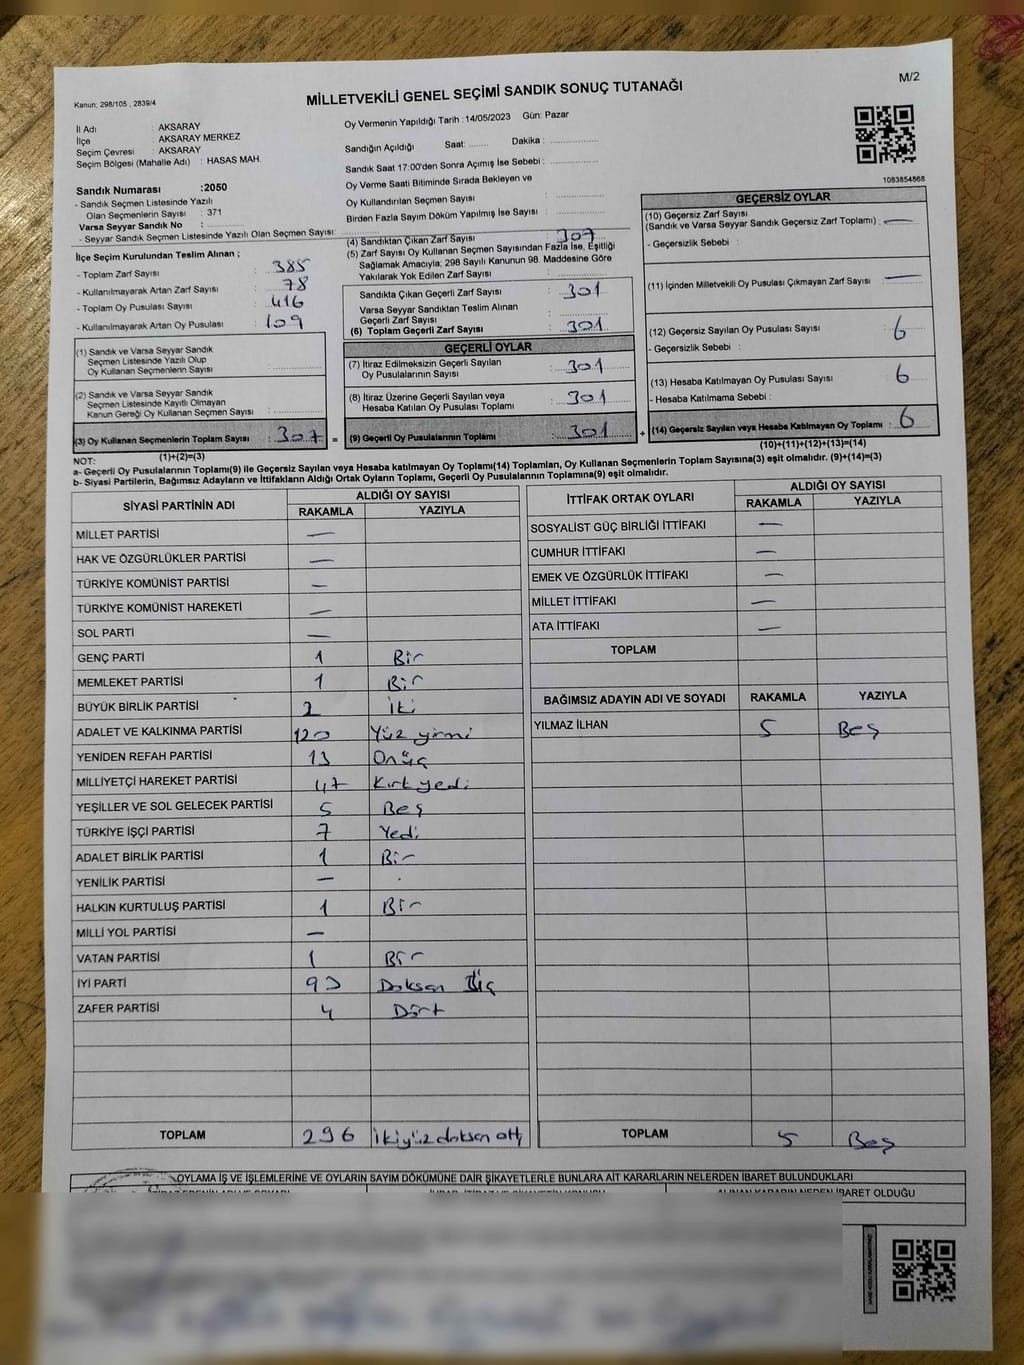 Kanun: 298/105 , 2839/4
MİLLETVEKİLİ GENEL SEÇİMİ SANDIK SONUÇ TUTANAĞI
M/2
İl Adı : AKSARAY
İlçe : AKSARAY MERKEZ
Seçim Çevresi : AKSARAY
Seçim Bölgesi (Mahalle Adı) : HASAS MAH.
Sandık Numarası :2050
- Sandık Seçmen Listesinde Yazılı
Olan Seçmenlerin Sayısı : 371
Varsa Seyyar Sandık No :
- Seyyar Sandık Seçmen Listesinde Yazılı Olan Seçmen Sayısı:
Oy Vermenin Yapıldığı Tarih :14/05/2023 Gün: Pazar
Sandığın Açıldığı Saat: Dakika :
Sandık Saat 17:00'den Sonra Açımış İse Sebebi :
Oy Verme Saati Bitiminde Sırada Bekleyen ve
Oy Kullandırılan Seçmen Sayısı :
Birden Fazla Sayım Döküm Yapılmış İse Sayısı :
1083854868
İlçe Seçim Kurulundan Teslim Alınan ;
- Toplam Zarf Sayısı : 385
- Kullanılmayarak Artan Zarf Sayısı : 78
- Toplam Oy Pusulası Sayısı : 416
- Kullanılmayarak Artan Oy Pusulası : 109
(1) Sandık ve Varsa Seyyar Sandık
Seçmen Listesinde Yazılı Olup
Oy Kullanan Seçmenlerin Sayısı :
(2) Sandık ve Varsa Seyyar Sandık
Seçmen Listesinde Kayıtlı Olmayan
Kanun Gereği Oy Kullanan Seçmen Sayısı :
(3) Oy Kullanan Seçmenlerin Toplam Sayısı : 307 =
(1)+(2)=(3)
(4) Sandıktan Çıkan Zarf Sayısı : 307
(5) Zarf Sayısı Oy Kullanan Seçmen Sayısından Fazla İse, Eşitliği
Sağlamak Amacıyla; 298 Sayılı Kanunun 98. Maddesine Göre
Yakılarak Yok Edilen Zarf Sayısı :
Sandıkta Çıkan Geçerli Zarf Sayısı : 301
Varsa Seyyar Sandıktan Teslim Alınan
Geçerli Zarf Sayısı :
(6) Toplam Geçerli Zarf Sayısı : 301
GEÇERLİ OYLAR
(7) İtiraz Edilmeksizin Geçerli Sayılan
Oy Pusulalarının Sayısı : 301
(8) İtiraz Üzerine Geçerli Sayılan veya
Hesaba Katılan Oy Pusulası Toplamı : 301
(9) Geçerli Oy Pusulalarının Toplamı : 301 +
GEÇERSİZ OYLAR
(10) Geçersiz Zarf Sayısı
(Sandık ve Varsa Seyyar Sandık Geçersiz Zarf Toplamı) : —
- Geçersizlik Sebebi :
(11) İçinden Milletvekili Oy Pusulası Çıkmayan Zarf Sayısı : —
(12) Geçersiz Sayılan Oy Pusulası Sayısı : 6
- Geçersizlik Sebebi :
(13) Hesaba Katılmayan Oy Pusulası Sayısı : 6
- Hesaba Katılmama Sebebi :
(14) Geçersiz Sayılan veya Hesaba Katılmayan Oy Toplamı : 6
(10)+(11)+(12)+(13)=(14)
NOT:
a- Geçerli Oy Pusulalarının Toplamı(9) ile Geçersiz Sayılan veya Hesaba katılmayan Oy Toplamı(14) Toplamları, Oy Kullanan Seçmenlerin Toplam Sayısına(3) eşit olmalıdır. (9)+(14)=(3)
b- Siyasi Partilerin, Bağımsız Adayların ve İttifakların Aldığı Ortak Oyların Toplamı, Geçerli Oy Pusulalarının Toplamına(9) eşit olmalıdır.
SİYASİ PARTİNİN ADI ALDIĞI OY SAYISI
RAKAMLA YAZIYLA
MİLLET PARTİSİ —
HAK VE ÖZGÜRLÜKLER PARTİSİ —
TÜRKİYE KOMÜNİST PARTİSİ —
TÜRKİYE KOMÜNİST HAREKETİ —
SOL PARTİ —
GENÇ PARTİ 1 Bir
MEMLEKET PARTİSİ 1 Bir
BÜYÜK BİRLİK PARTİSİ 2 İki
ADALET VE KALKINMA PARTİSİ 120 Yüz yirmi
YENİDEN REFAH PARTİSİ 13 Onüç
MİLLİYETÇİ HAREKET PARTİSİ 47 Kırk yedi
YEŞİLLER VE SOL GELECEK PARTİSİ 5 Beş
TÜRKİYE İŞÇİ PARTİSİ 7 Yedi
ADALET BİRLİK PARTİSİ 1 Bir
YENİLİK PARTİSİ —
HALKIN KURTULUŞ PARTİSİ 1 Bir
MİLLİ YOL PARTİSİ —
VATAN PARTİSİ 1 Bir
İYİ PARTİ 93 Doksan Üç
ZAFER PARTİSİ 4 Dört
TOPLAM 296 İkiyüz doksan altı
İTTİFAK ORTAK OYLARI ALDIĞI OY SAYISI
RAKAMLA YAZIYLA
SOSYALİST GÜÇ BİRLİĞİ İTTİFAKI —
CUMHUR İTTİFAKI —
EMEK VE ÖZGÜRLÜK İTTİFAKI —
MİLLET İTTİFAKI —
ATA İTTİFAKI —
TOPLAM
BAĞIMSIZ ADAYIN ADI VE SOYADI RAKAMLA YAZIYLA
YILMAZ İLHAN 5 Beş
TOPLAM 5 Beş
OYLAMA İŞ VE İŞLEMLERİNE VE OYLARIN SAYIM DÖKÜMÜNE DAİR ŞİKAYETLERLE BUNLARA AİT KARARLARIN NELERDEN İBARET BULUNDUKLARI
ALINAN KARARIN NEDEN İBARET OLDUĞU